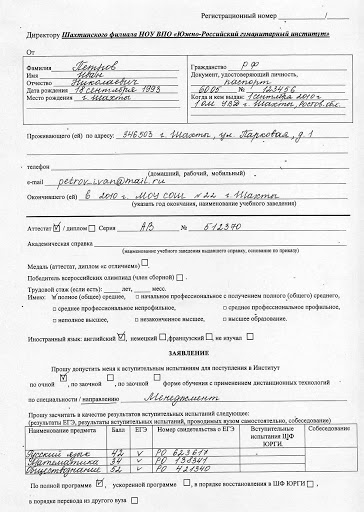 Регистрационный номер ______/______
Директору Шахтинского филиала НОУ ВПО «Южно-Российский гуманитарный институт»
От
Фамилия Петров
Имя Иван
Отчество Николаевич
Дата рождения 18 сентября 1993
Место рождения г. Шахты
Гражданство РФ
Документ, удостоверяющий личность,
паспорт
6005 № 123456
Когда и кем выдан: 1 сентября 2010 г.
1 ОМ УВД г. Шахты, Ростов. обл.
Проживающего (ей) по адресу: 346503 г. Шахты, ул. Парковая, д. 1
телефон
(домашний, рабочий, мобильный)
e-mail petrov_ivan@mail.ru
Окончившего (ей) в 2010 г. МОУ СОШ №22 г. Шахты
(указать год окончания, наименование учебного заведения)
Аттестат ☑ / диплом □ Серия АВ № 512370
Академическая справка
(наименование учебного заведения выдавшего справку, основания по приказу)
Медаль (аттестат, диплом «с отличием») □
Победитель всероссийских олимпиад (член сборной) □.
Трудовой стаж (если есть): _____ лет, _____ мес.
Имею: ☑ полное (общее) среднее, □ начальное профессиональное с получением полного (общего) среднего,
□ среднее профессиональное непрофильное, □ среднее профессиональное профильное,
□ неполное высшее, □ незаконченное высшее, □ высшее образование.
Иностранный язык: английский ☑, немецкий □, французский □, не изучал □
ЗАЯВЛЕНИЕ
Прошу допустить меня к вступительным испытаниям для поступления в Институт
по очной ☑, по заочной □, по заочной □ форме обучения с применением дистанционных технологий
по специальности / направлению Менеджмент
Прошу засчитать в качестве результатов вступительных испытаний следующее:
(результаты ЕГЭ, результаты вступительных испытаний, проводимых вузом самостоятельно, собеседование)
Наименование предмета Балл ЕГЭ Номер свидетельства о ЕГЭ Вступительные испытания ШФ ЮРГИ. Собеседование
Русский язык 42 v РО 623617
Математика 34 v РО 131341
Обществознание 52 v РО 421340
По полной программе ☑, ускоренной программе □, в порядке восстановления в ШФ ЮРГИ □,
в порядке перевода из другого вуза □